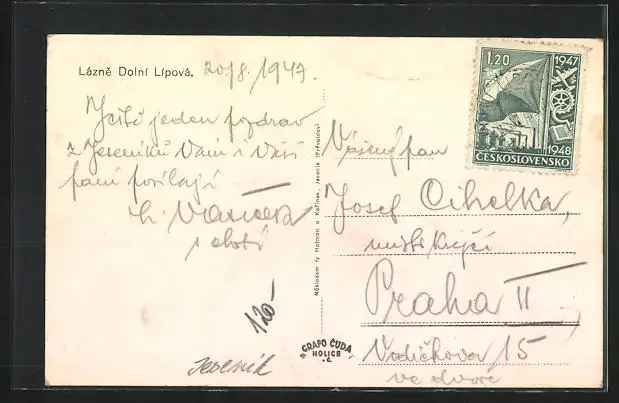 Lázně Dolní Lípová. 20/8. 1947.
Ještě jeden pozdrav
z Jeseníků Vám i Vaší
paní posílají
i chotí
120-
Jeseník
Nákladem fy Hofman a Kořínek, Jeseník (Frývaldov)
GRAFO ČUDA
HOLICE
v Č.
1.20 1947
1948
ČESKOSLOVENSKO
Vážený pan
Josef Cihelka,
mistr krejčí
Praha II
Vodičkova 15
ve dvoře